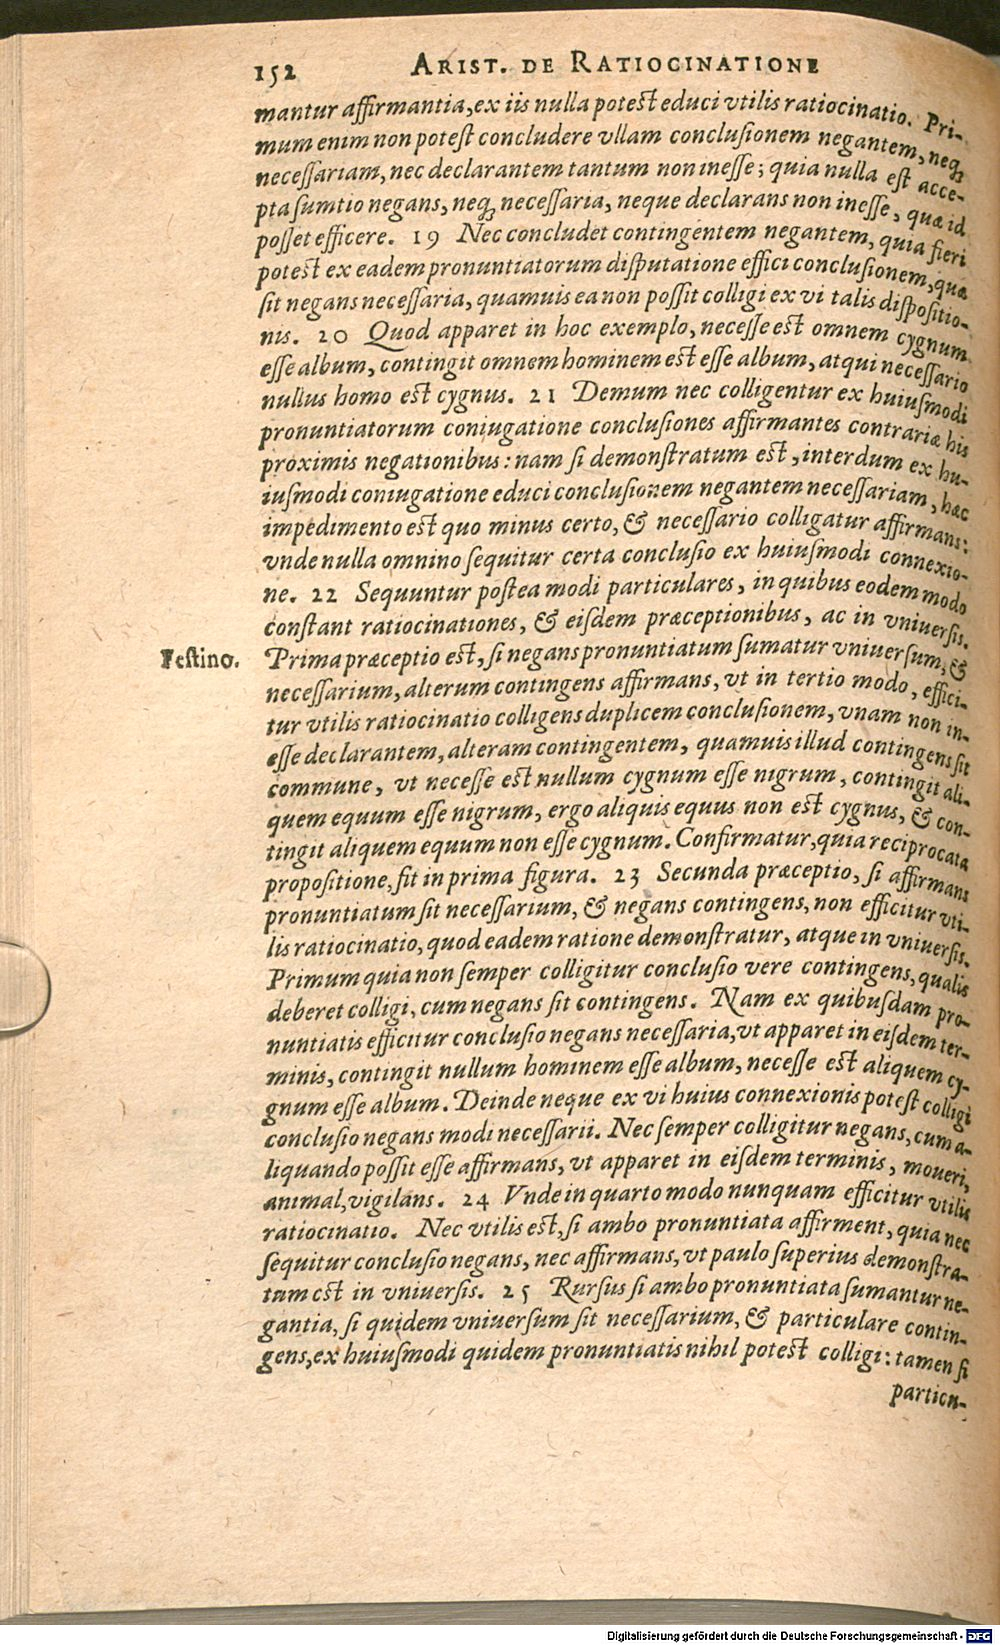 152 ARIST. DE RATIOCINATIONE
mantur affirmantia, ex iis nulla potest educi vtilis ratiocinatio. Pri-
mum enim non potest concludere vllam conclusionem negantem, neq;
necessariam, nec declarantem tantum non inesse; quia nulla est acce-
pta sumtio negans, neq; necessaria, neque declarans non inesse, quæ id
posset efficere. 19 Nec concludet contingentem negantem, quia fieri
potest ex eadem pronuntiatorum disputatione effici conclusionem, quæ
sit negans necessaria, quamuis ea non possit colligi ex vi talis dispositio-
nis. 20 Quod apparet in hoc exemplo, necesse est omnem cygnum
esse album, contingit omnem hominem est esse album, atqui necessario
nullus homo est cygnus. 21 Demum nec colligentur ex huiusmodi
pronuntiatorum coniugatione conclusiones affirmantes contrariæ his
proximis negationibus: nam si demonstratum est, interdum ex hu-
iusmodi coniugatione educi conclusionem negantem necessariam, hæc
impedimento est quo minus certo, & necessario colligatur affirmans:
vnde nulla omnino sequitur certa conclusio ex huiusmodi connexio-
ne. 22 Sequuntur postea modi particulares, in quibus eodem modo
constant ratiocinationes, & eisdem præceptionibus, ac in vniuersis.
Festino. Prima præceptio est, si negans pronuntiatum sumatur vniuersum, &
necessarium, alterum contingens affirmans, vt in tertio modo, effici-
tur vtilis ratiocinatio colligens duplicem conclusionem, vnam non in-
esse declarantem, alteram contingentem, quamuis illud contingens sit
commune, vt necesse est nullum cygnum esse nigrum, contingit ali-
quem equum esse nigrum, ergo aliquis equus non est cygnus, & con-
tingit aliquem equum non esse cygnum. Confirmatur, quia reciprocata
propositione, fit in prima figura. 23 Secunda præceptio, si affirmans
pronuntiatum sit necessarium, & negans contingens, non efficitur vti-
lis ratiocinatio, quod eadem ratione demonstratur, atque in vniuersis.
Primum quia non semper colligitur conclusio vere contingens, qualis
deberet colligi, cum negans sit contingens. Nam ex quibusdam pro-
nuntiatis efficitur conclusio negans necessaria, vt apparet in eisdem ter-
minis, contingit nullum hominem esse album, necesse est aliquem cy-
gnum esse album. Deinde neque ex vi huius connexionis potest colligi
conclusio negans modi necessarii. Nec semper colligitur negans, cum a-
liquando possit esse affirmans, vt apparet in eisdem terminis, moueri,
animal, vigilans. 24 Vnde in quarto modo nunquam efficitur vtilis
ratiocinatio. Nec vtilis est, si ambo pronuntiata affirment, quia nec
sequitur conclusio negans, nec affirmans, vt paulo superius demonstra-
tum est in vniuersis. 25 Rursus si ambo pronuntiata sumantur ne-
gantia, si quidem vniuersum sit necessarium, & particulare contin-
gens, ex huiusmodi quidem pronuntiatis nihil potest colligi: tamen si
particu-
Digitalisierung gefördert durch die Deutsche Forschungsgemeinschaft - DFG